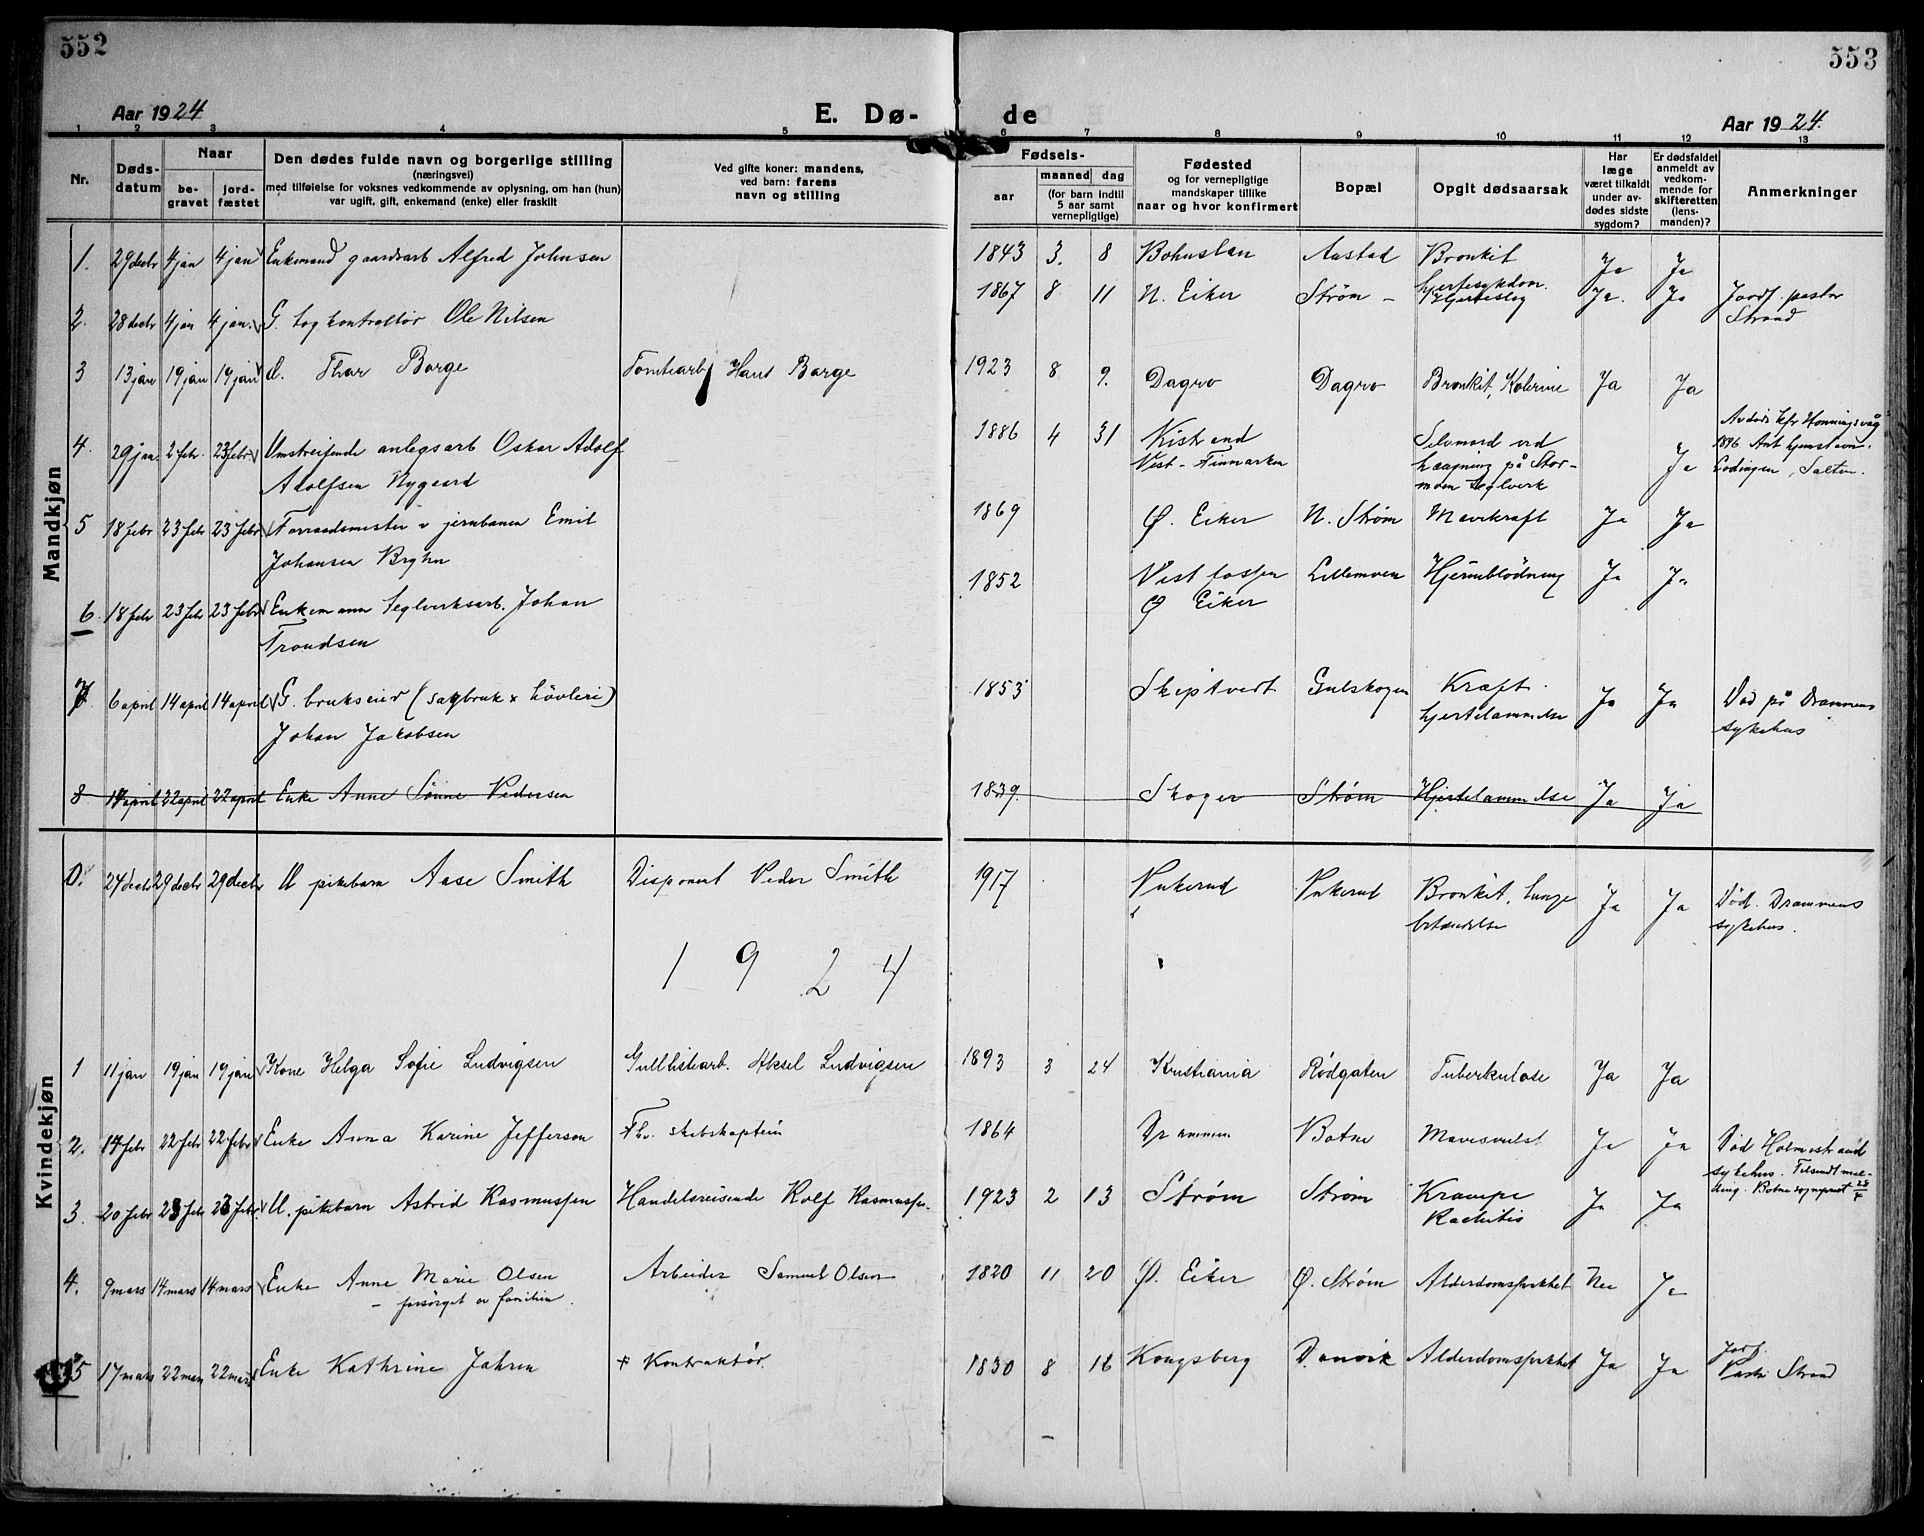 552
553
Aar 1924
E. Dø-
de
Aar 1924.
1 2 3 4 5 6 7 8 9 10 11 12 13
Nr.
Døds-
datum
Naar
be-
gravet
jord-
fæstet
Den dødes fulde navn og borgerlige stilling
(næringsvei)
med tilføielse for voksnes vedkommende av oplysning, om han (hun)
var ugift, gift, enkemand (enke) eller fraskilt
Ved gifte koner: mandens,
ved barn: farens
navn og stilling
Fødsels-
aar
maaned dag
(for barn indtil
5 aar samt
vernepligtige)
Fødested
og for vernepligtige
mandskaper tillike
naar og hvor konfirmert
Bopæl
Opgit dødsaarsak
Har
læge
været tilkaldt
under av-
dødes sidste
sygdom?
Er dødsfaldet
anmeldt av
vedkom-
mende for
skifteretten
(lens-
manden)?
Anmerkninger
Mandkjøn
1. 29 decbr 4 jan 4 jan Enkemand gaardsarb Alfred Johnsen 1843 3. 8 Bohuslan Austad Bronkit Ja Ja
hjertesykdom.
2. 28 decbr 4 jan 4 jan. G. togkontrollør Ole Nilsen 1867 8 11 N. Eiker Strøm – Hjerteslag Ja. Ja Jordf. pastor
Strand
3 13 jan 19 jan 19 jan U. Thor Borge Tomtearb Hans Borge 1923 8 9. Dagro Dagro Bronkit, Kolerine Ja Ja
4 29 jan. 2 febr. 23 febr Omstreifende anlegsarb Oskar Adolf 1886 4 31 Kistrand Selvmord ved Ja
Adolfsen Nygaard Vest-Finmarken hængning på Stor-
moen Teglverk
1896 Ant hjemstavn
Lødingen, Salten.
5 18 febr 23 febr 23 febr Forraadsmester v jernbanen Emil 1869 Ø. Eiker N. Strøm Mavekræft Ja Ja
Johansen Bryhn
6. 18 febr 23 febr 23 febr Enkemann Teglverksarb. Johan 1852 Vestfossen Lillemoen Hjerneblödning Ja Ja
Trondsen Ø Eiker
7 6 april 14 april 14 april G. brukseier (sagbruk x hövleri) 1853 Skiptvedt Gulskogen Kræft. Ja Ja Død på Drammens
Johan Jakobsen hjertelammelse sykehus
8 19 april 22 april 22 april Enke Anne Sønne Pedersen 1839. Skoger Strøm Hjertelammelse Ja Ja
Kvindekjøn
0. 24 decbr 29 decbr 29 decbr U pikebarn Aase Smith Disponent Peder Smith 1917 Vukerud Vukerud Bronkit, lunge Ja Ja Död. Drammens
betændelse sykehus.
1924
1 11 jan 19 jan 19 jan Kone Helga Sofie Ludvigsen Gullistearb. Aksel Ludvigsen 1893 3 24 Kristiania Rödgaten Tuberkulose Ja Ja
2. 17 febr 22 febr 22 febr Enke Anna Karine Jefferson Fhv. skibskaptein 1864 Drammen Botne Mavesvulst Ja Ja Död Holmestrand
sykehus. Tilsendt mel-
ding. Botne sogneprest
3. 20 febr 23 febr 23 febr. U. pikebarn Astrid Rasmussen Handelsreisende Rolf Rasmussen. 1923 2 13 Strøm Strøm Krampe Ja Ja
Rachitis
4. 9 mars 14 mars 14 mars Enke Anne Marie Olsen Arbeider Samuel Olsen 1820 11 20 Ø. Eiker Ø. Strøm Alderdomssvækket Nei Ja
– forsörget av familien.
5 17 mars 22 mars 22 mars Enke Kathrine Jahren Kontraktør. 1830 8 16 Kongsberg Danvik Alderdomssvækket Ja Ja Jordf.
Pastor Strand